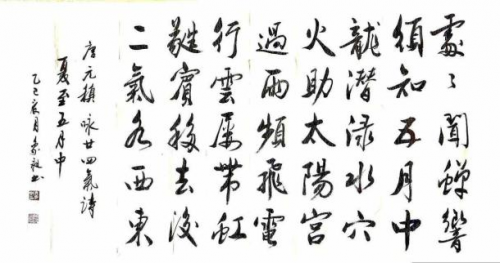 處〻聞蟬響
須知五月中
龍潛渌水穴
火助太陽宫
過雨頻飛電
行雲屢帶虹
蕤賓移去後
二氣各西東
唐元稹咏廿四氣詩
夏至五月中
乙巳夏月